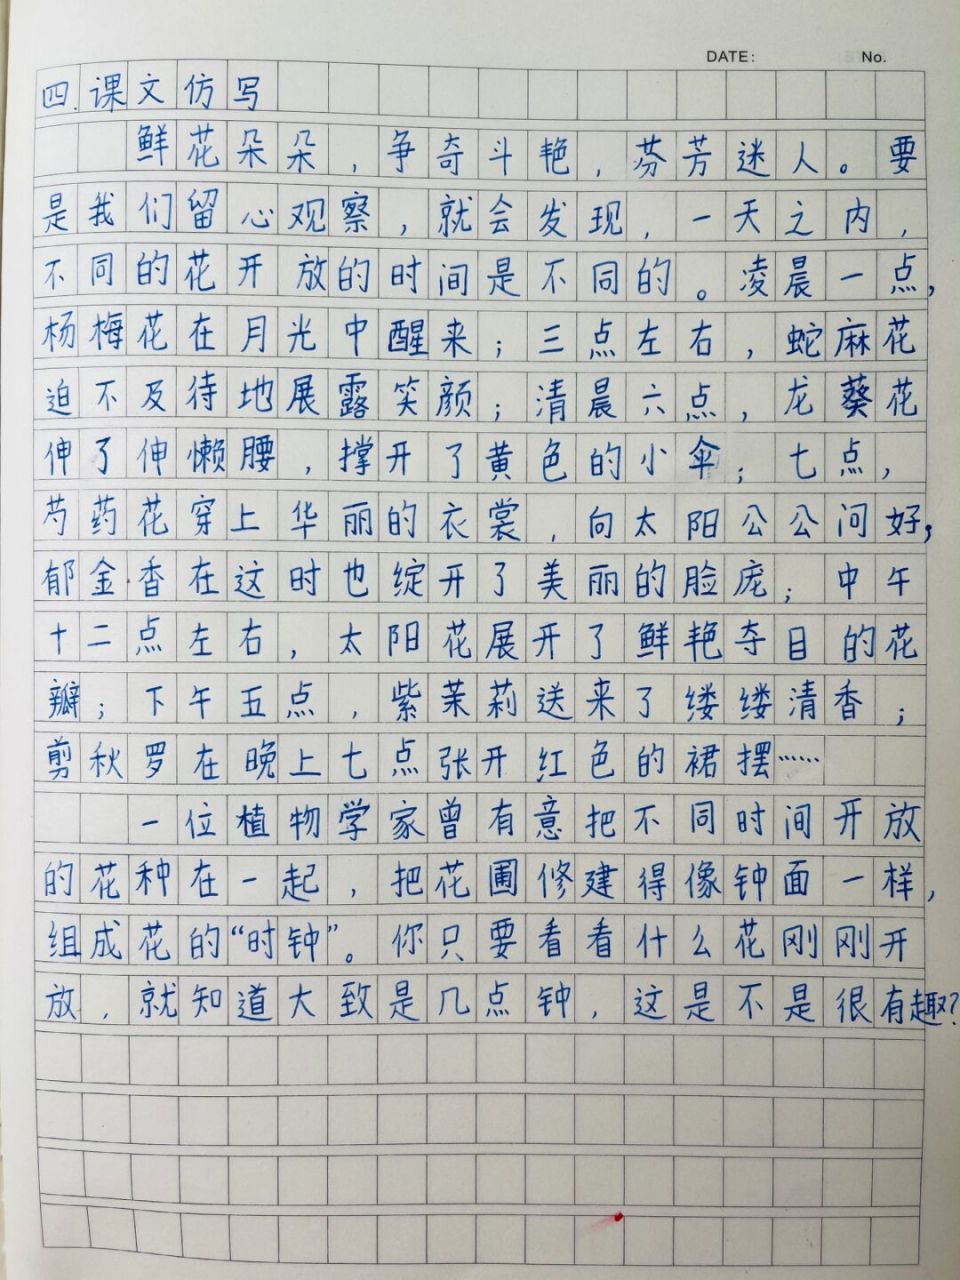 DATE: No.
四.课文仿写
鲜花朵朵，争奇斗艳，芬芳迷人。要
是我们留心观察，就会发现，一天之内，
不同的花开放的时间是不同的。凌晨一点，
杨梅花在月光中醒来；三点左右，蛇麻花
迫不及待地展露笑颜；清晨六点，龙葵花
伸了伸懒腰，撑开了黄色的小伞；七点，
芍药花穿上华丽的衣裳，向太阳公公问好，
郁金香在这时也绽开了美丽的脸庞；中午
十二点左右，太阳花展开了鲜艳夺目的花
瓣；下午五点，紫茉莉送来了缕缕清香；
剪秋罗在晚上七点张开红色的裙摆……
一位植物学家曾有意把不同时间开放
的花种在一起，把花圃修建得像钟面一样，
组成花的“时钟”。你只要看看什么花刚刚开
放，就知道大致是几点钟，这是不是很有趣？